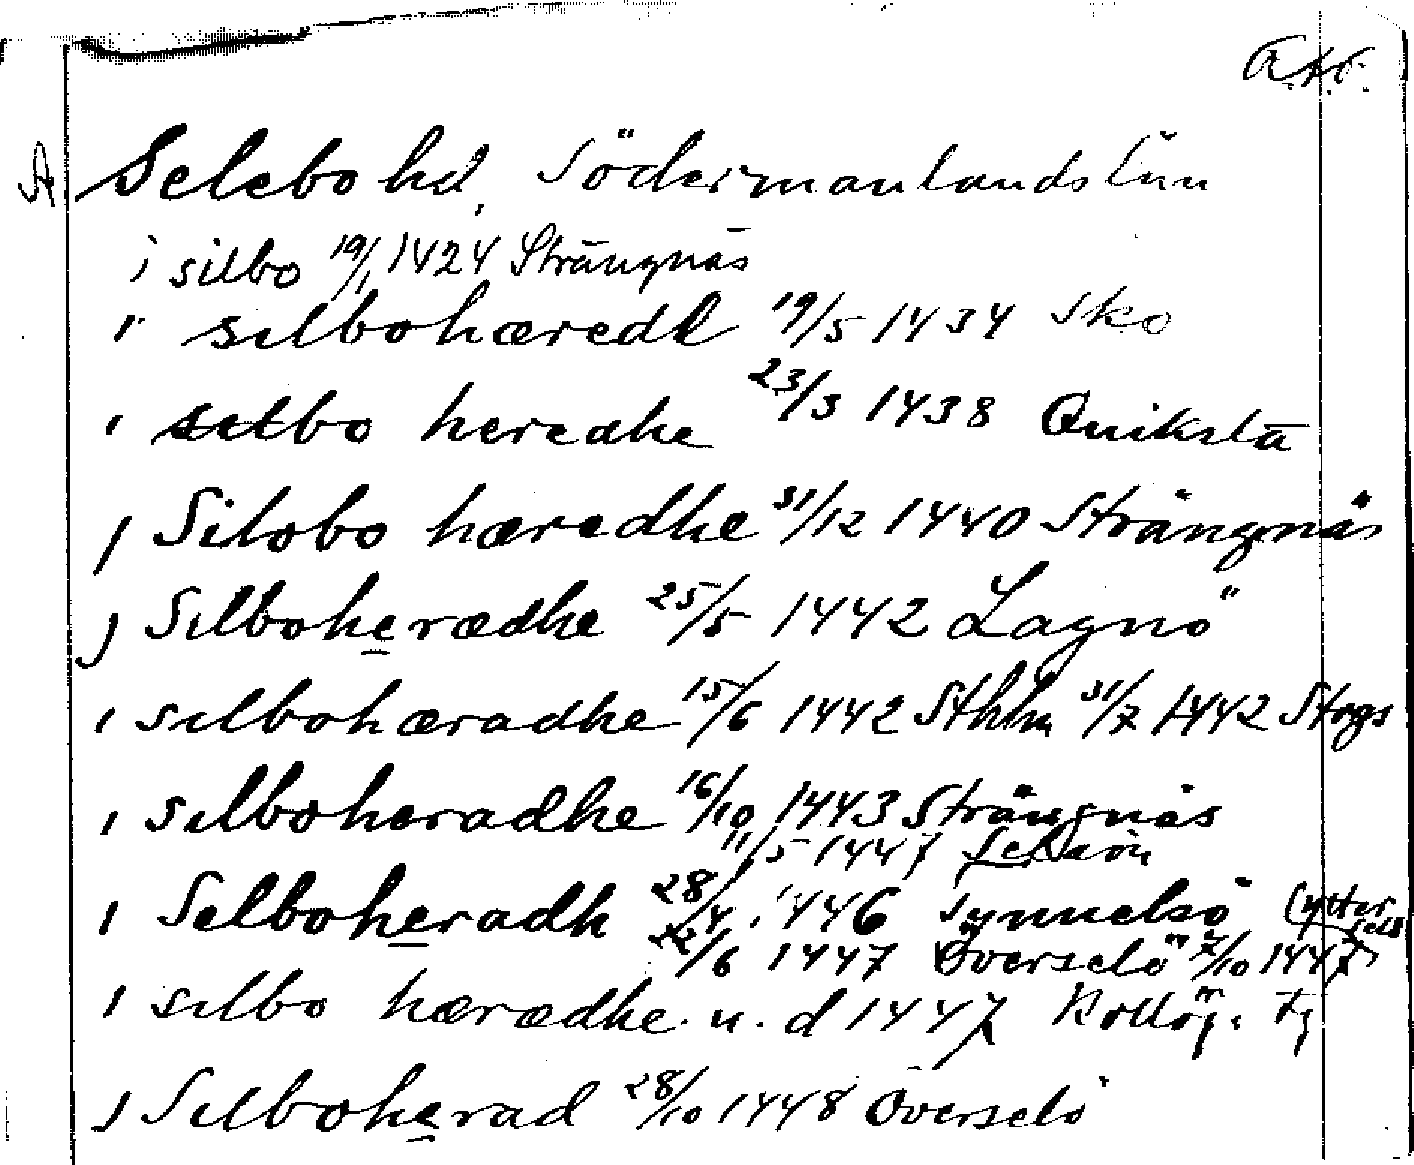 A
Selebo hd, Södermanlands län
i silbo 19/1 1424 Strängnäs
i selbohæredh 19/5 1434 Sko
i selbo heredhe 23/3 1438 Quikstā
j Silobo hæredhe 31/12 1440 Strängnäs
j Selboherædhe 25/5 1442 Lagnö
i selbohæradhe 15/6 1442 Sthlm 31/7 1442 Stngs
i selboheradhe 16/10 1443 Strängnäs
11/5 1447 Selaön
i Selboheradh 28/4 1446 Synnelsö (Ytter
22/6 1447 Överselö 7/10 1447
i selbo hærædhe u. d 1447
j Selboherad 28/10 1448 Överselö